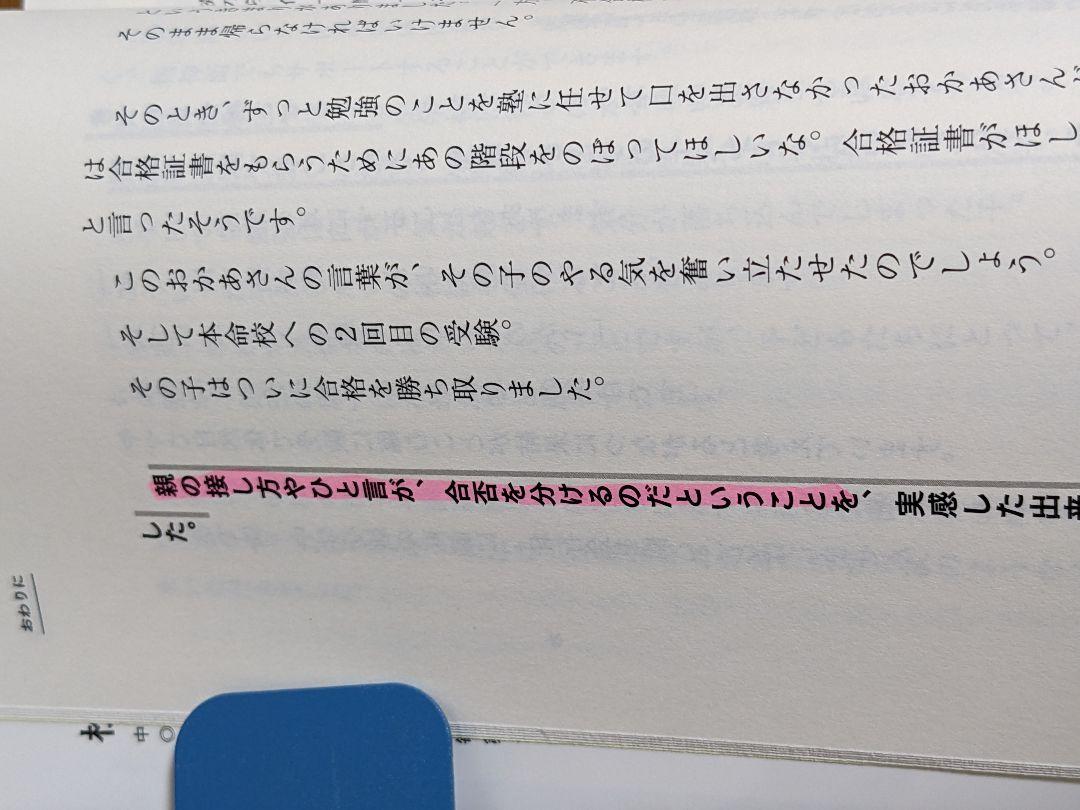 そのまま帰らなければいけません。
そのとき、ずっと勉強のことを塾に任せて口を出さなかったおかあさんが
は合格証書をもらうためにあの階段をのぼってほしいな。合格証書がほし
と言ったそうです。
このおかあさんの言葉が、その子のやる気を奮い立たせたのでしょう。
そして本命校への2回目の受験。
その子はついに合格を勝ち取りました。
親の接し方やひと言が、合否を分けるのだということを、実感した出来
した。
おわりに
中